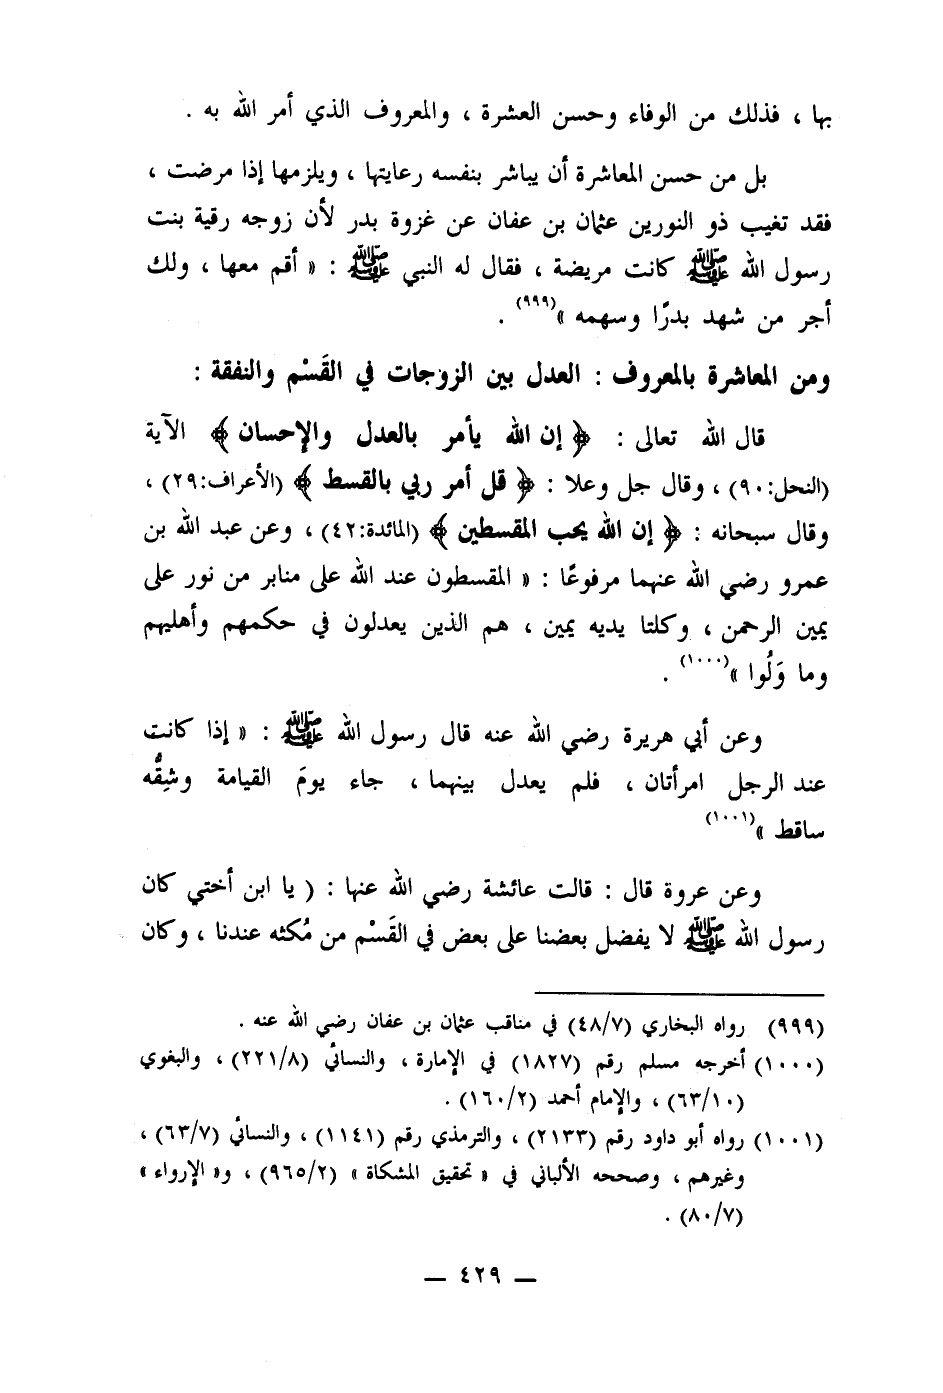 بها ، فذلك من الوفاء وحسن العشرة ، والمعروف الذي أمر الله به .
بل من حسن المعاشرة أن يباشر بنفسه رعايتها ، ويلزمها إذا مرضت ،
فقد تغيب ذو النورين عثمان بن عفان عن غزوة بدر لأن زوجه رقية بنت
رسول الله ﷺ كانت مريضة ، فقال له النبي ﷺ : « أقم معها ، ولك
أجر من شهد بدرًا وسهمه »(٩٩٩) .
ومن المعاشرة بالمعروف : العدل بين الزوجات في القَسْم والنفقة :
قال الله تعالى : ﴿ إن الله يأمر بالعدل والإحسان ﴾ الآية
(النحل:٩٠) ، وقال جل وعلا : ﴿ قل أمر ربي بالقسط ﴾ (الأعراف:٢٩) ،
وقال سبحانه : ﴿ إن الله يحب المقسطين ﴾ (المائدة:٤٢) ، وعن عبد الله بن
عمرو رضي الله عنهما مرفوعًا : « المقسطون عند الله على منابر من نور على
يمين الرحمن ، وكلتا يديه يمين ، هم الذين يعدلون في حكمهم وأهليهم
وما وَلُوا »(١٠٠٠) .
وعن أبي هريرة رضي الله عنه قال رسول الله ﷺ : « إذا كانت
عند الرجل امرأتان ، فلم يعدل بينهما ، جاء يومَ القيامة وشِقُّه
ساقط »(١٠٠١)
وعن عروة قال : قالت عائشة رضي الله عنها : ( يا ابن أختي كان
رسول الله ﷺ لا يفضل بعضنا على بعض في القَسْم من مُكثه عندنا ، وكان
(٩٩٩) رواه البخاري (٤٨/٧) في مناقب عثمان بن عفان رضي الله عنه .
(١٠٠٠) أخرجه مسلم رقم (١٨٢٧) في الإمارة ، والنسائي (٢٢١/٨) ، والبغوي
(٦٣/١٠) ، والإمام أحمد (١٦٠/٢) .
(١٠٠١) رواه أبو داود رقم (٢١٣٣) ، والترمذي رقم (١١٤١) ، والنسائي (٦٣/٧) ،
وغيرهم ، وصححه الألباني في « تحقيق المشكاة » (٩٦٥/٢) ، و« الإرواء »
(٨٠/٧) .
— ٤٢٩ —